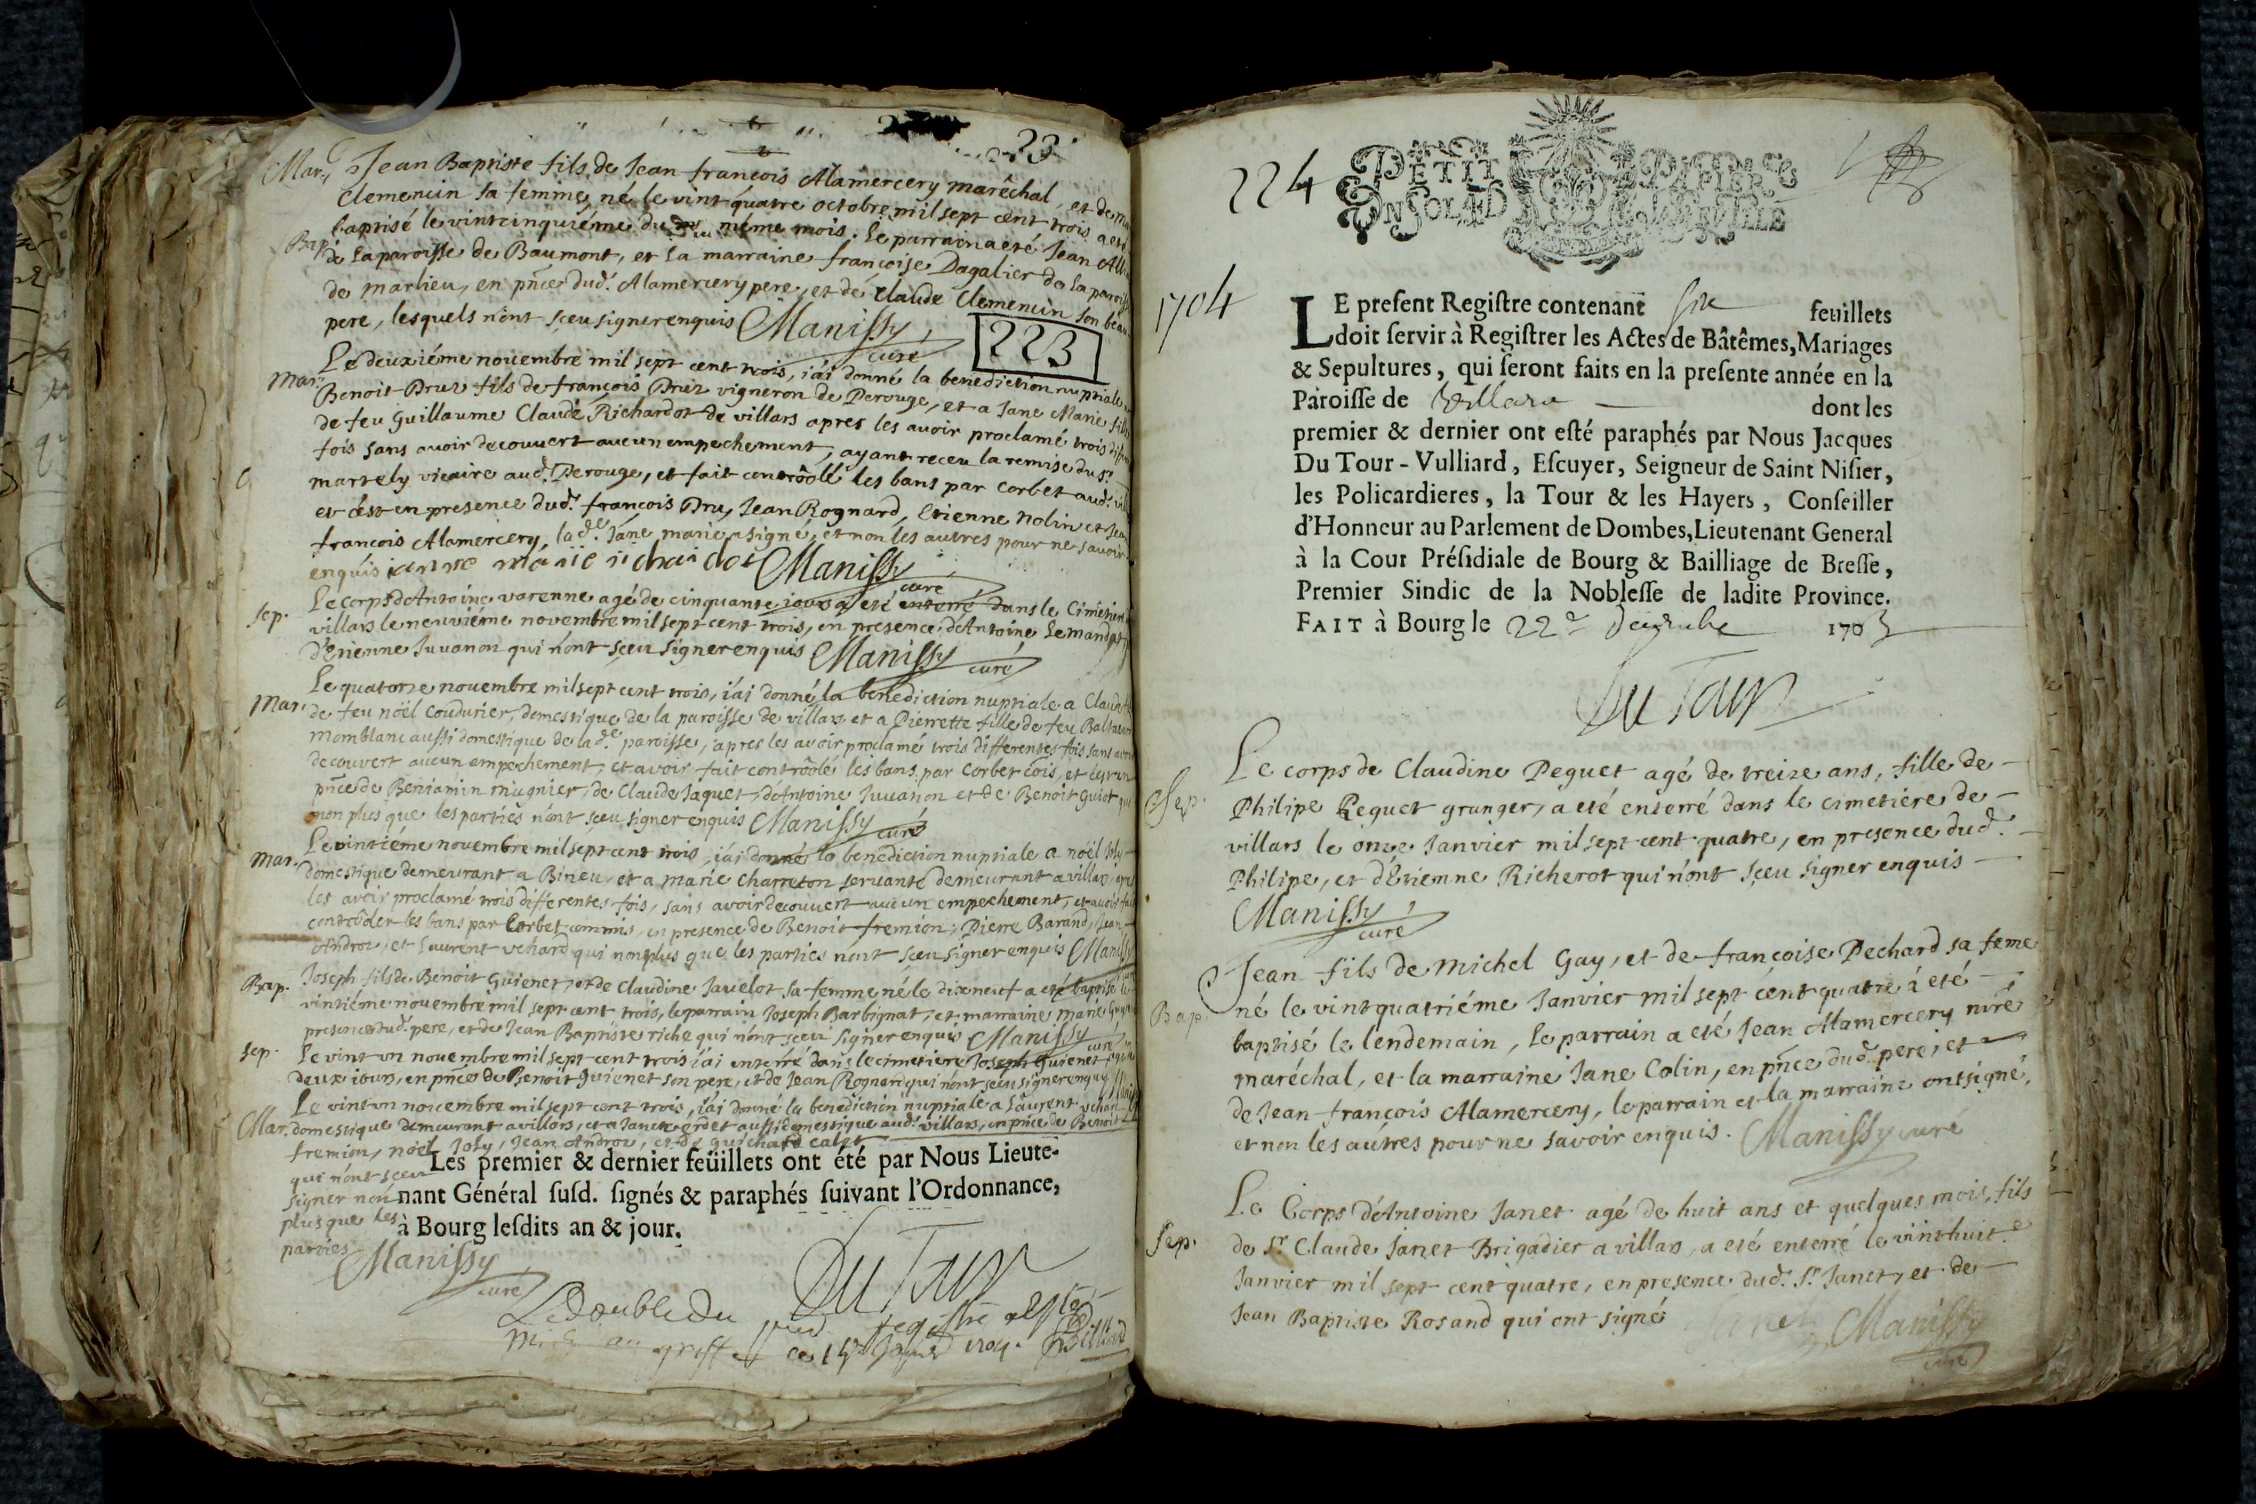 23
Mar.
Jean Baptiste fils de Jean francois Alamercery maréchal, et de
Clemencin sa femme, né le vint quatre octobre mil sept cent trois a eté
Bap.
baptisé le vintcinquiéme du même mois. le parrain a eté Jean
de la paroisse de Baumont, et la marraine françoise Dagalier de la paroisse
de marlieu, en pñce dud. Alamercery pere, et de Claude Clemencin son beau
pere, lesquels n'ont sçeu signer enquis Manissy curé
223
Mar.
Le deuxiéme novembre mil sept cent trois, j'ai donné la benediction nuptiale a
Benoit Druz fils de françois Druz vigneron de Perouge, et a Jane Marie fille
de feu Guillaume Claude Richardot de villars apres les avoir proclamé trois
fois sans avoir decouvert aucun empechement, ayant receu la remise du Sr.
martely vicaire aud. Perouge, et fait contrôolé les bans par Corbet aud.
et c'est en presence dud. françois Dru, Jean Rognard, Etienne Nolin et Jean
francois Alamercery, lade. Jane marie a signé, et non les autres pour ne savoir
enquis janne marie richardot Manissy curé
Sep.
Le corps d'Antoine varenne agé de cinquante jours a eté enterré dans le Cimetiere
villars le neuviéme novembre mil sept cent trois, en presence d'Antoine Lemand
d'Etienne Juvanon qui n'ont sçeu signer enquis Manissy curé
Mar.
Le quatorze novembre mil sept cent trois, j'ai donné la benediction nuptiale a Claude
de feu noël Coudurier, domestique de la paroisse de villars et a Pierrette fille de feu
momblanc aussi domestique de lade. paroisse, apres les avoir proclamé trois differentes fois sans avoir
decouvert aucun empechement, et avoir fait contrôolé les bans par Corbet
pñce de Benjamin mugnier, de Claude Jaquet, d'Antoine Juvanon et de Benoit Guiot
non plus que les parties n'ont sçeu signer enquis Manissy curé
Mar.
Le vintiéme novembre mil sept cent trois, j'ai donné la benediction nuptiale a noël Joly
domestique demeurant a Birieu, et a marie Charreton servante demeurant a villars,
les avoir proclamé trois differentes fois, sans avoir decouvert aucun empechement, et avoir fait
contrôoler les bans par Corbet commis, en presence de Benoit fremion, Pierre Barand, Jean
Androz, et Laurent vchard qui non plus que les parties n'ont sçeu signer enquis Manissy
Bap.
Joseph fils de Benoit Guienet, et de Claudine Javelot sa femme né le dixneuf a eté baptisé le
vintiéme novembre mil sept cent trois, le parrain Joseph Barbignat, et marraine marie
presence dud. pere, et de Jean Baptiste riche qui n'ont sceu signer enquis Manissy curé
Sep.
Le vint un novembre mil sept cent trois j'ai enterré dans le cimetiere Joseph Guienet
deux jours, en pñce de Benoit Guienet son pere, et de Jean Rognard qui n'ont sceu signer enquis
Mar.
Le vint un novembre mil sept cent trois, j'ai donné la benediction nuptiale a Laurent vchard
domestique demeurant a villars, et a Jane aussi domestique aud. villars, en pñce de Benoit
fremion, noël Joly, Jean Androz, et de guichard
qui n'ont sceu
signer non
plus que les
parties
Manissy
curé
Les premier & dernier feüillets ont été par Nous Lieute-
nant Général susd. signés & paraphés suivant l'Ordonnance,
à Bourg lesdits an & jour.
Du Tour
Le double du
registre
au greffe ce 15 1704.
224
PETIT PAPIER
UN SOL
1704
LE present Registre contenant six feuillets
doit servir à Registrer les Actes de Bâtêmes, Mariages
& Sepultures, qui seront faits en la presente année en la
Paroisse de villars dont les
premier & dernier ont esté paraphés par Nous Jacques
Du Tour-Vulliard, Escuyer, Seigneur de Saint Nisier,
les Policardieres, la Tour & les Hayers, Conseiller
d'Honneur au Parlement de Dombes, Lieutenant General
à la Cour Présidiale de Bourg & Bailliage de Bresse,
Premier Sindic de la Noblesse de ladite Province.
FAIT à Bourg le 22e Decembre 1703
Du Tour
Sep.
Le corps de Claudine Peguet agé de treize ans, fille de
Philipe Peguet granger, a eté enterré dans le cimetiere de
villars le onze Janvier mil sept cent quatre, en presence dud.
Philipe, et d'Etienne Richerot qui n'ont sçeu signer enquis
Manissy curé
Bap.
Jean fils de michel Gay, et de françoise Pechard sa feme
né le vint quatriéme Janvier mil sept cent quatre a eté
baptisé le lendemain, le parrain a eté Jean Alamercery
maréchal, et la marraine Jane Colin, en pñce dud. pere, et
de Jean francois Alamercery, le parrain et la marraine ont signé,
et non les autres pour ne savoir enquis. Manissy curé
Sep.
Le Corps d'Antoine Janet agé de huit ans et quelques mois, fils
de Sr. Claude Janet Brigadier a villars, a eté enterré le vint huit.e
Janvier mil sept cent quatre, en presence dud. Sr. Janet, et de
Jean Baptiste Rosand qui ont signé Manissy
curé